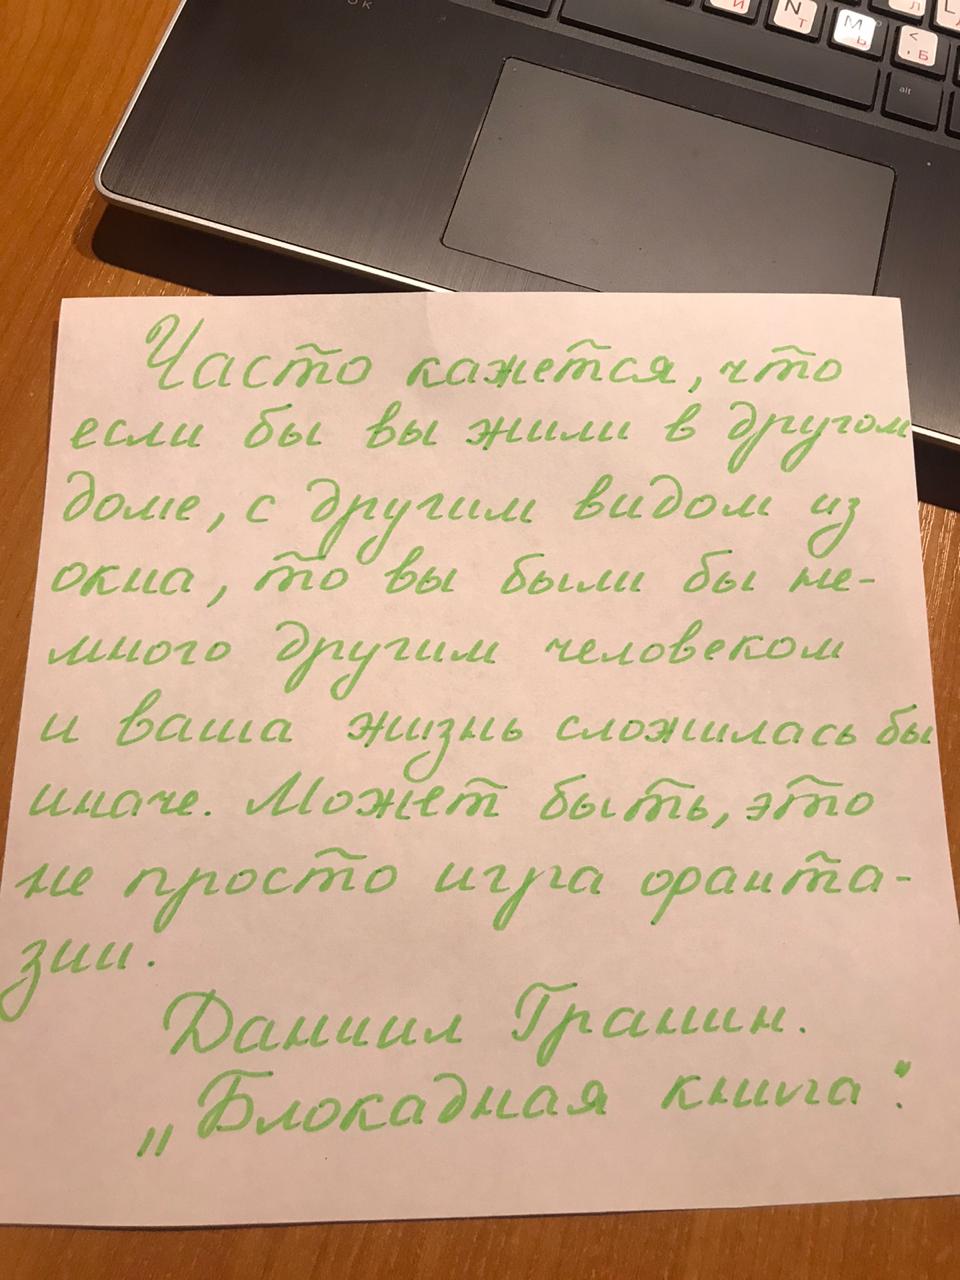 OK
И
N Т
M Ь
< , Б
Л
L
alt
Часто кажется, что
если бы вы жили в другом
доме, с другим видом из
окна, то вы были бы не-
много другим человеком
и ваша жизнь сложилась бы
иначе. Может быть, это
не просто игра фанта-
зии.
Даниил Гранин.
„Блокадная книга".